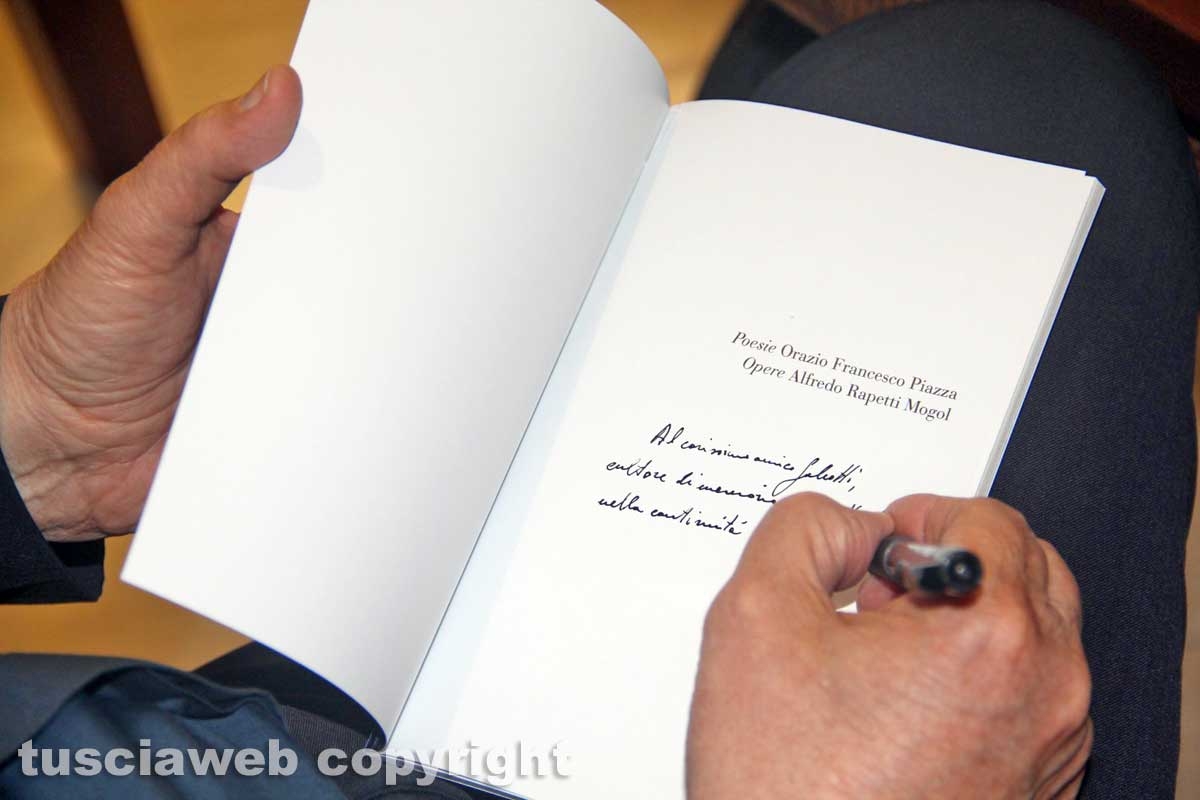 Poesie Orazio Francesco Piazza
Opere Alfredo Rapetti Mogol
Al carissimo amico Galeotti,
cultore di memoria
nella continuità
tusciaweb copyright